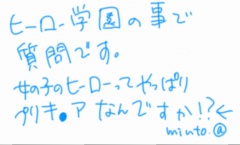 ヒーロー学園の事で
質問です。
女の子のヒーローってやっぱり
プリキ。アなんですか!?←
minto.@